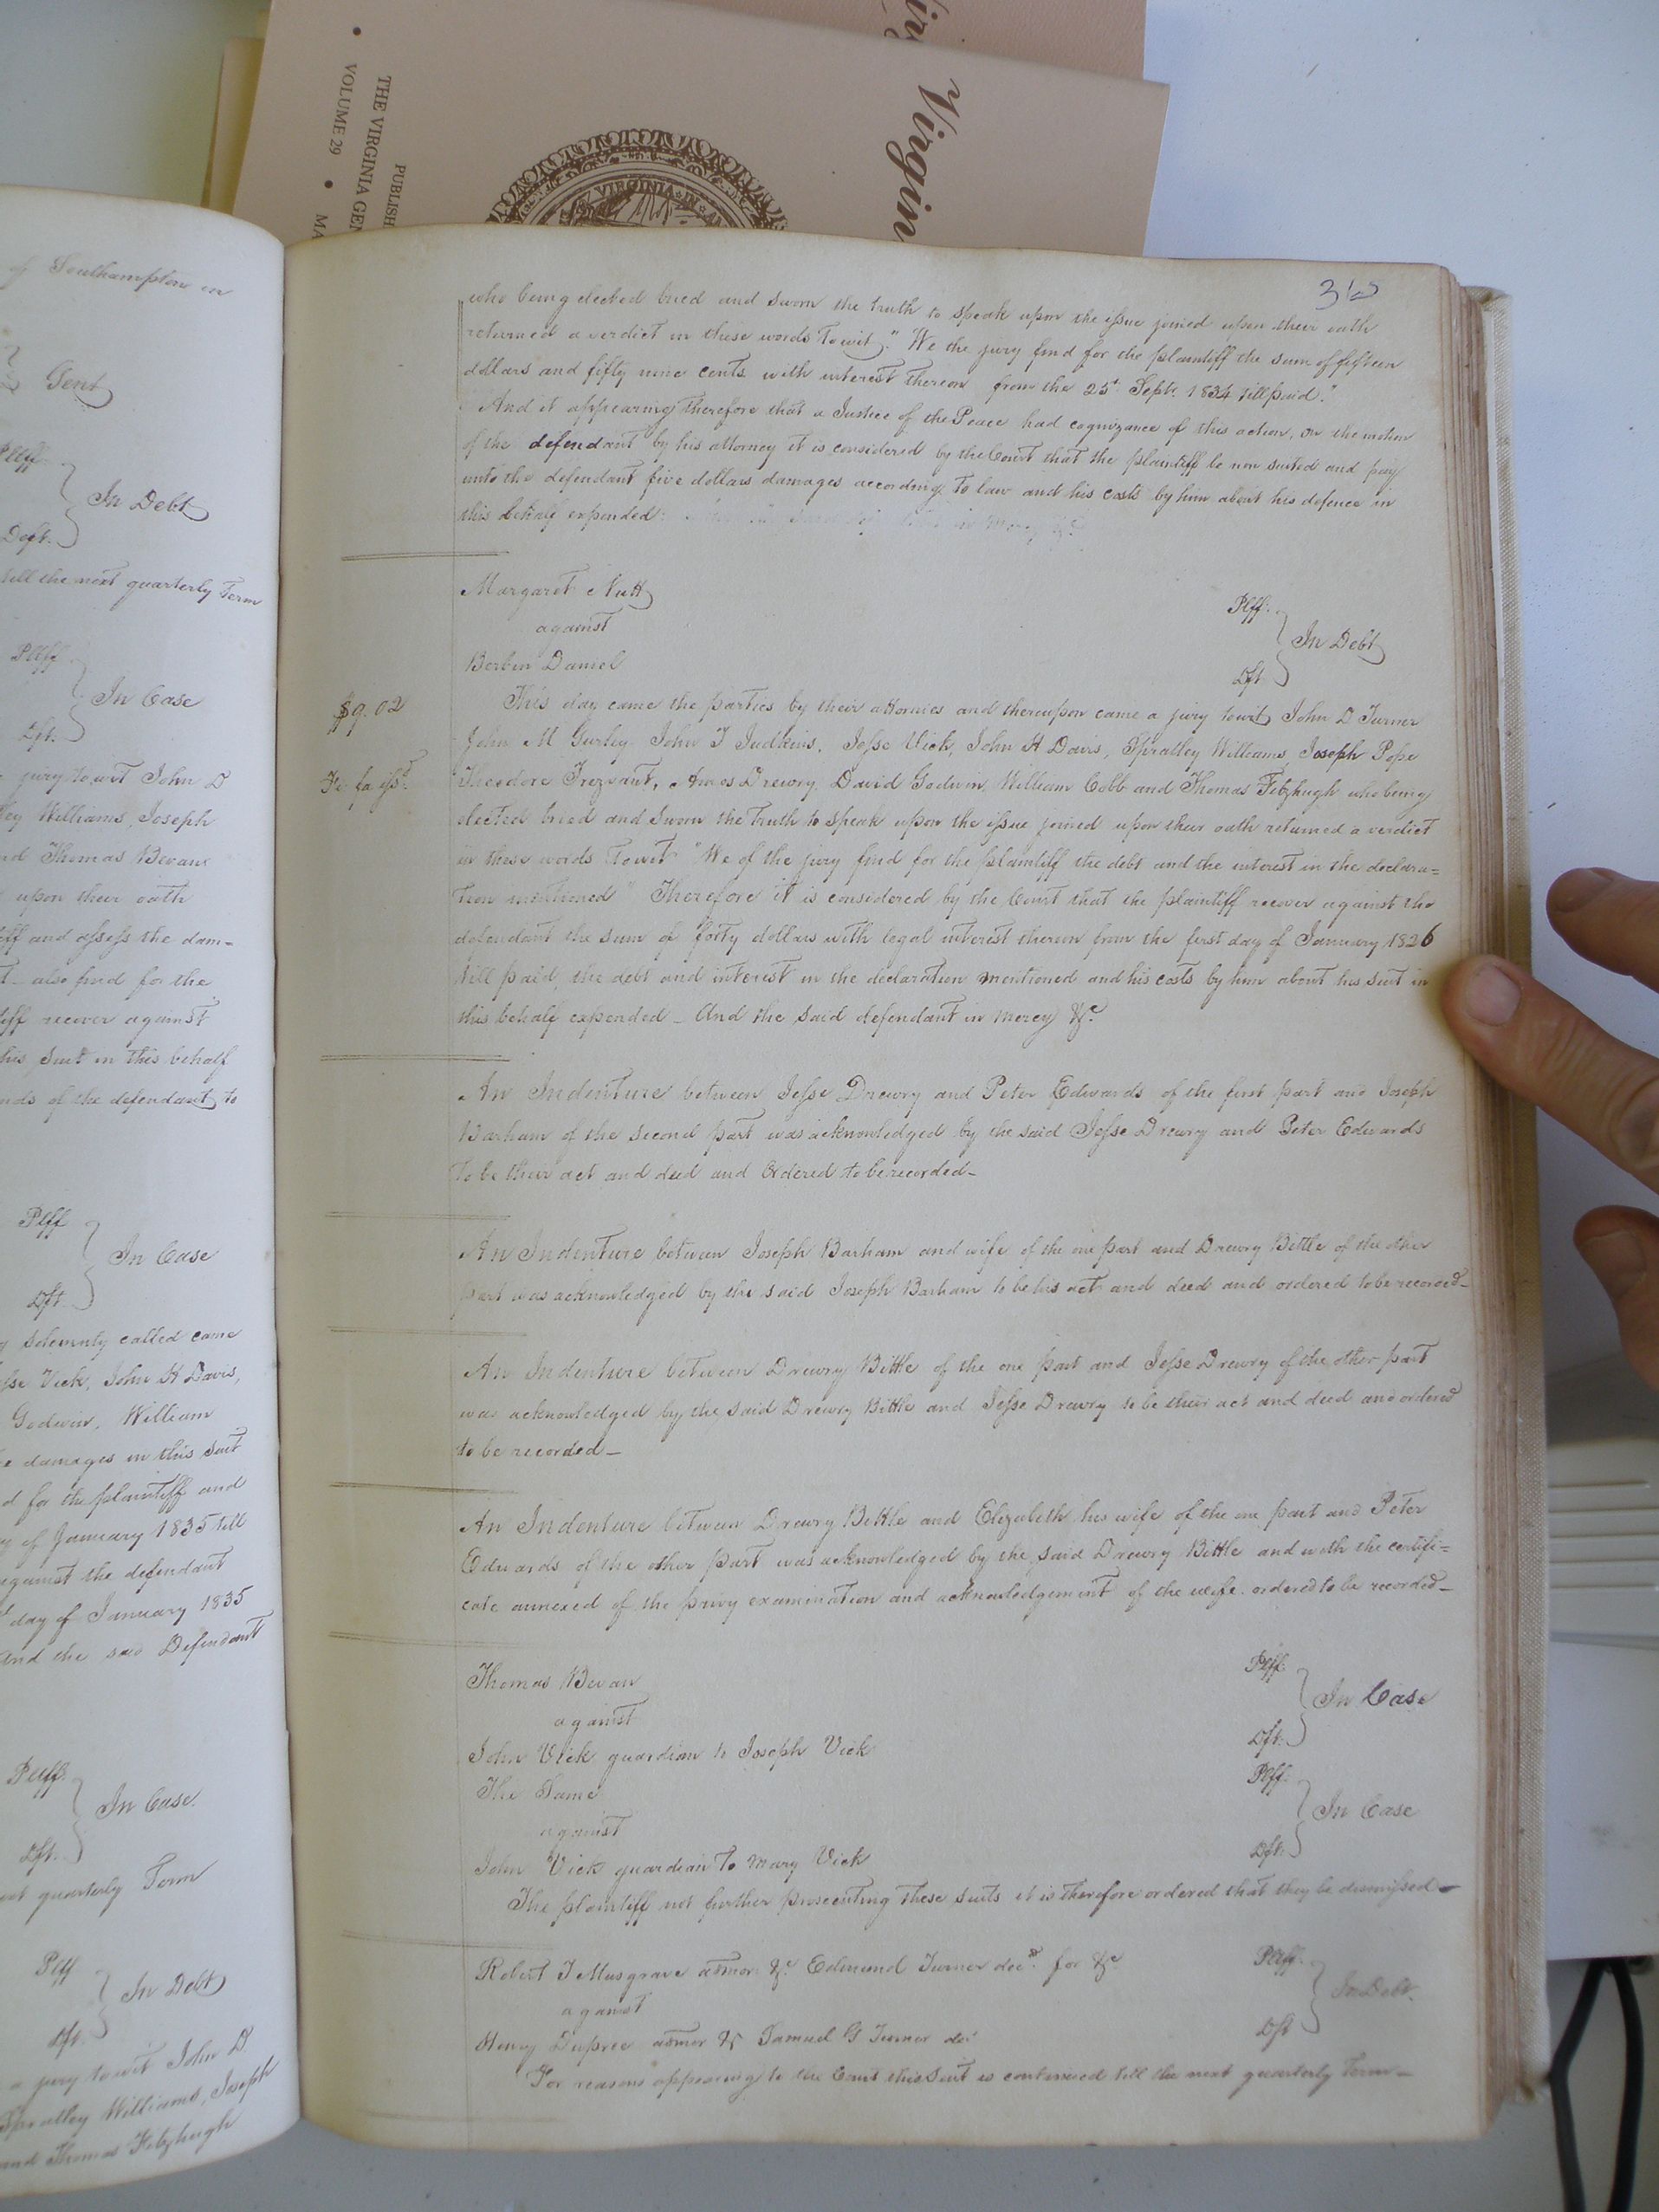 Virgin
THE VIRGINIA GEN
VOLUME 29
PUBLISH
VIRGINIA
of Southampton in
Gent
Plff
In Debt
Deft.
till the next quarterly Term
Plff
In Case
Dft.
jury to wit John D
Williams, Joseph
nd Thomas Bevan
upon their oath
iff and assess the dam-
also find for the
tiff recover against
his suit in this behalf
nds of the defendant to
Plff
In Case
Dft
solemnly called came
sse Vick, John H Davis,
Godwin, William
e damages in this suit
d for the plaintiff and
of January 1835 till
against the defendant
day of January 1835
and the said Defendant
Plff.
In Case.
Dft.
quarterly Term
Plff
In Debt
Dft
a jury to wit John D.
Spratley Williams, Joseph
and Thomas Fitzhugh
who being elected tried and sworn the truth to speak upon the issue joined upon their oath
returned a verdict in these words Towit, "We the jury find for the plaintiff the sum of fifteen
dollars and fifty nine cents with interest thereon from the 25t. Sept. 1834 till paid."
And it appearing therefore that a Justice of the Peace had cognizance of this action, on the motion
of the defendant by his attorney it is considered by the Court that the plaintiff be non suited and pay
unto the defendant five dollars damages according to law and his costs by him about his defence in
this behalf expended.
Margaret Nutt
against
Plff.
In Debt
Dft
Daniel
$9.02
This day came the parties by their attornies and thereupon came a jury towit, John D Turner
John M Gurley John T Judkins, Jesse Vick, John H Davis, Spratley Williams, Joseph Pope
Fi. fa. isst.
Theodore Trezvant, Amos Drewry, David Godwin, William Cobb and Thomas Fitzhugh who being
elected tried and sworn the truth to speak upon the issue joined upon their oath returned a verdict
in these words Towit "We of the jury find for the plaintiff the debt and the interest in the declara=
tion mentioned" Therefore it is considered by the Court that the plaintiff recover against the
defendant the sum of forty dollars with legal interest thereon from the first day of January 1826
till paid, the debt and interest in the declaration mentioned and his costs by him about his suit in
this behalf expended_ And the said defendant in mercy &c.
An Indenture between Jesse Drewry and Peter Edwards of the first part and Joseph
Barham of the second part was acknowledged by the said Jesse Drewry and Peter Edwards
to be their act and deed and Ordered to be recorded_
An Indenture between Joseph Barham and wife of the one part and Drewry Bittle of the other
part was acknowledged by the said Joseph Barham to be his act and deed and ordered to be recorded_
An Indenture between Drewry Bittle of the one part and Jesse Drewry of the other part
was acknowledged by the said Drewry Bittle and Jesse Drewry to be their act and deed and ordered
to be recorded_
An Indenture between Drewry Bittle and Elizabeth his wife of the one part and Peter
Edwards of the other part was acknowledged by the said Drewry Bittle and with the certifi=
cate annexed of the privy examination and acknowledgement of the wife ordered to be recorded_
Thomas Bevan
against
Plff.
In Case
Dft.
John Vick guardian to Joseph Vick
The Same
against
Plff.
In Case
Dft.
John Vick guardian to Mary Vick
The plaintiff not further prosecuting these suits it is therefore ordered that they be dismissed_
Robert T Musgrave admor &c Edmund Turner decd. for &c
against
Plff.
In Debt.
Dft
Henry Dupree admor &c Samuel G Turner dec
For reasons appearing to the Court this suit is continued till the next quarterly Term_